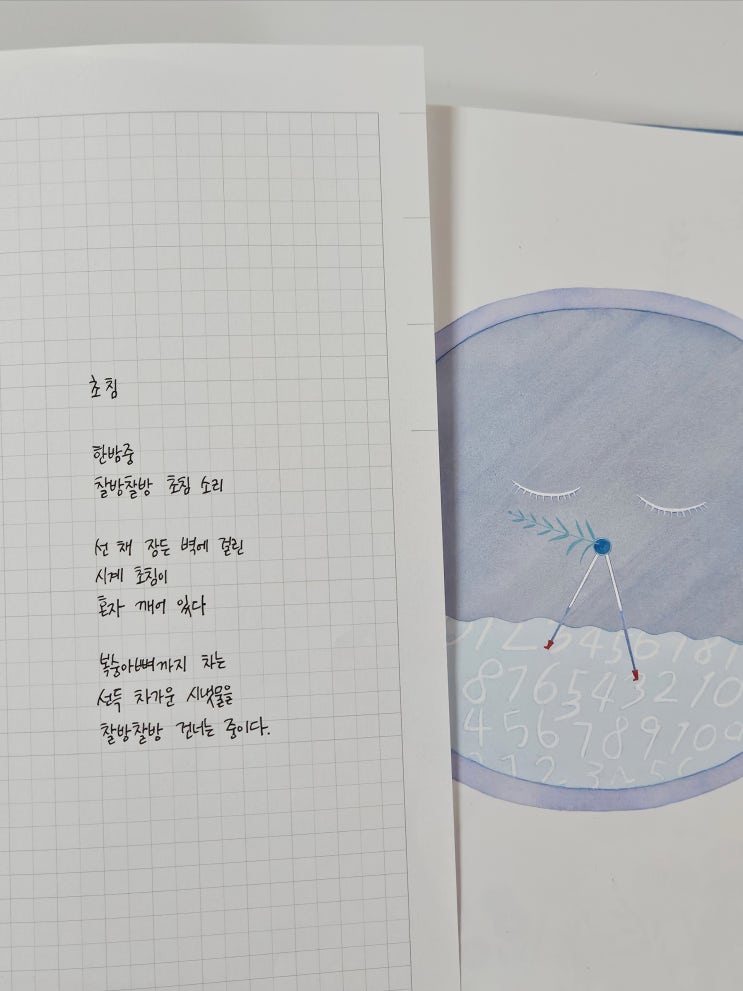 초침
한밤중
찰방찰방 초침 소리
선 채 잠든 벽에 걸린
시계 초침이
혼자 깨어 있다
복숭아뼈까지 차는
선득 차가운 시냇물을
찰방찰방 건너는 중이다.
8 7 6 5 4 3 2 1 0
4 5 6 7 8 9 1 0